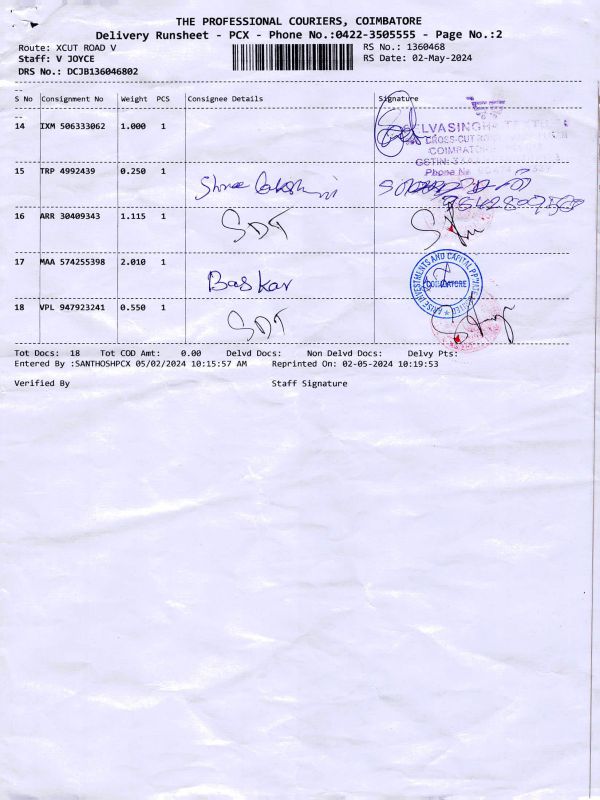 THE PROFESSIONAL COURIERS, COIMBATORE
Delivery Runsheet - PCX - Phone No.:0422-3505555 - Page No.:2
Route: XCUT ROAD V RS No.: 1360468
Staff: V JOYCE RS Date: 02-May-2024
DRS No.: DCJB136046802
S No Consignment No Weight PCS Consignee Details Signature
14 IXM 506333062 1.000 1
LVASINGH
CROSS-CUT
COIMBATORE
GSTIN:
Phone No
15 TRP 4992439 0.250 1
Shree
16 ARR 30409343 1.115 1
SDT
17 MAA 574255398 2.010 1
Baskar
ARISE INVESTMENTS AND CAPITAL
COIMBATORE
18 VPL 947923241 0.550 1
SDT
Tot Docs: 18 Tot COD Amt: 0.00 Delvd Docs: Non Delvd Docs: Delvy Pts:
Entered By :SANTHOSHPCX 05/02/2024 10:15:57 AM Reprinted On: 02-05-2024 10:19:53
Verified By Staff Signature